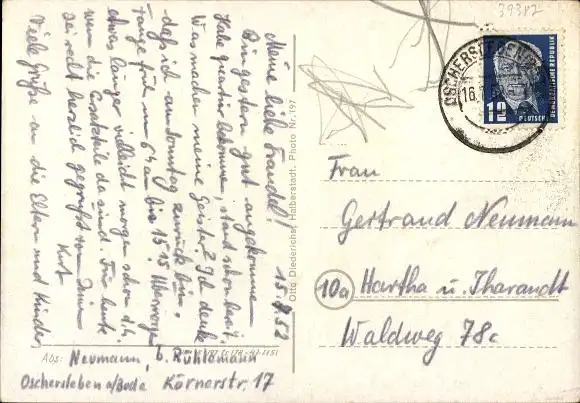 39387
15.9.52
Meine liebe Traudel!
Bin gestern gut angekommen
Habe Quartier bekommen, stand schon bereit.
Was machen meine Geister? Ich denke
daß ich am Sonntag zurück bin.
früh um 6h an bis 15 15
etwas länger vielleicht morgen schon d.h.
wenn die Ersatzteile da sind. Für heute
sei recht herzlich gegrüßt von Deinem
Kurt
Viele Grüße an die Eltern und Kinder
Abs: Neumann, b. Rühlemann
Oschersleben a/Bode Körnerstr. 17
Otto Diederichs, Halberstadt. Photo Nr. 197
OSCHERSLEBEN
16.
12
DEUTSCHE
DEMOKRATISCHE REPUBLIK
Frau
Gertraud Neumann
10a Hartha ü. Tharandt
Waldweg 78c